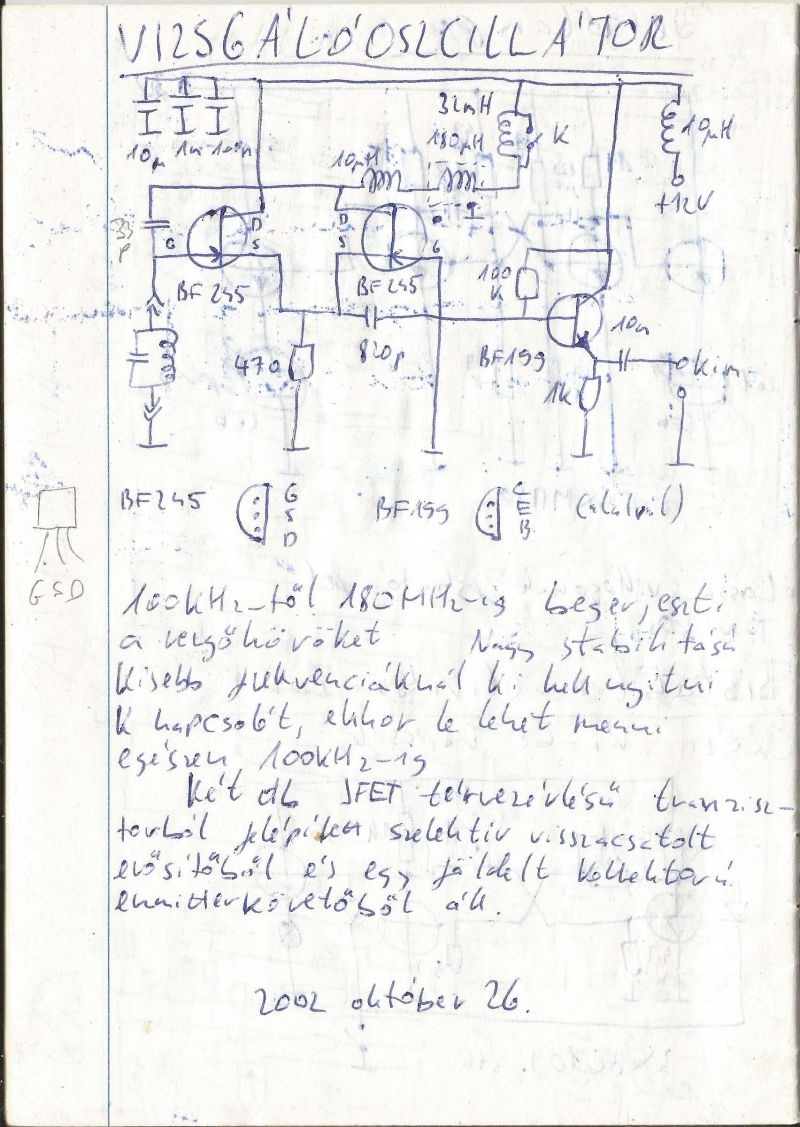 VIZSGÁLÓOSZCILLÁTOR
32mH
10μ 1n 100n
10μH
180μH
K
10μH
+12V
33p
G D S
D S G
BF 245
BF 245
100K
10n
470
820p
BF199
Kim
1K
BF245
G
S
D
BF199
C
E
B
(alulról)
GSD
100kHz-től 180MHz-ig begerjeszti
a rezgőköröket Nagy stabilitású
Kisebb frekvenciáknál ki kell nyitni
K kapcsolót, ekkor le lehet menni
egészen 100kHz-ig
Két db JFET térvezérlésű tranzisz-
torból felépített szelektív visszacsatolt
erősítőből és egy földelt kollektorú
emitterkövetőből áll.
2002 október 26.